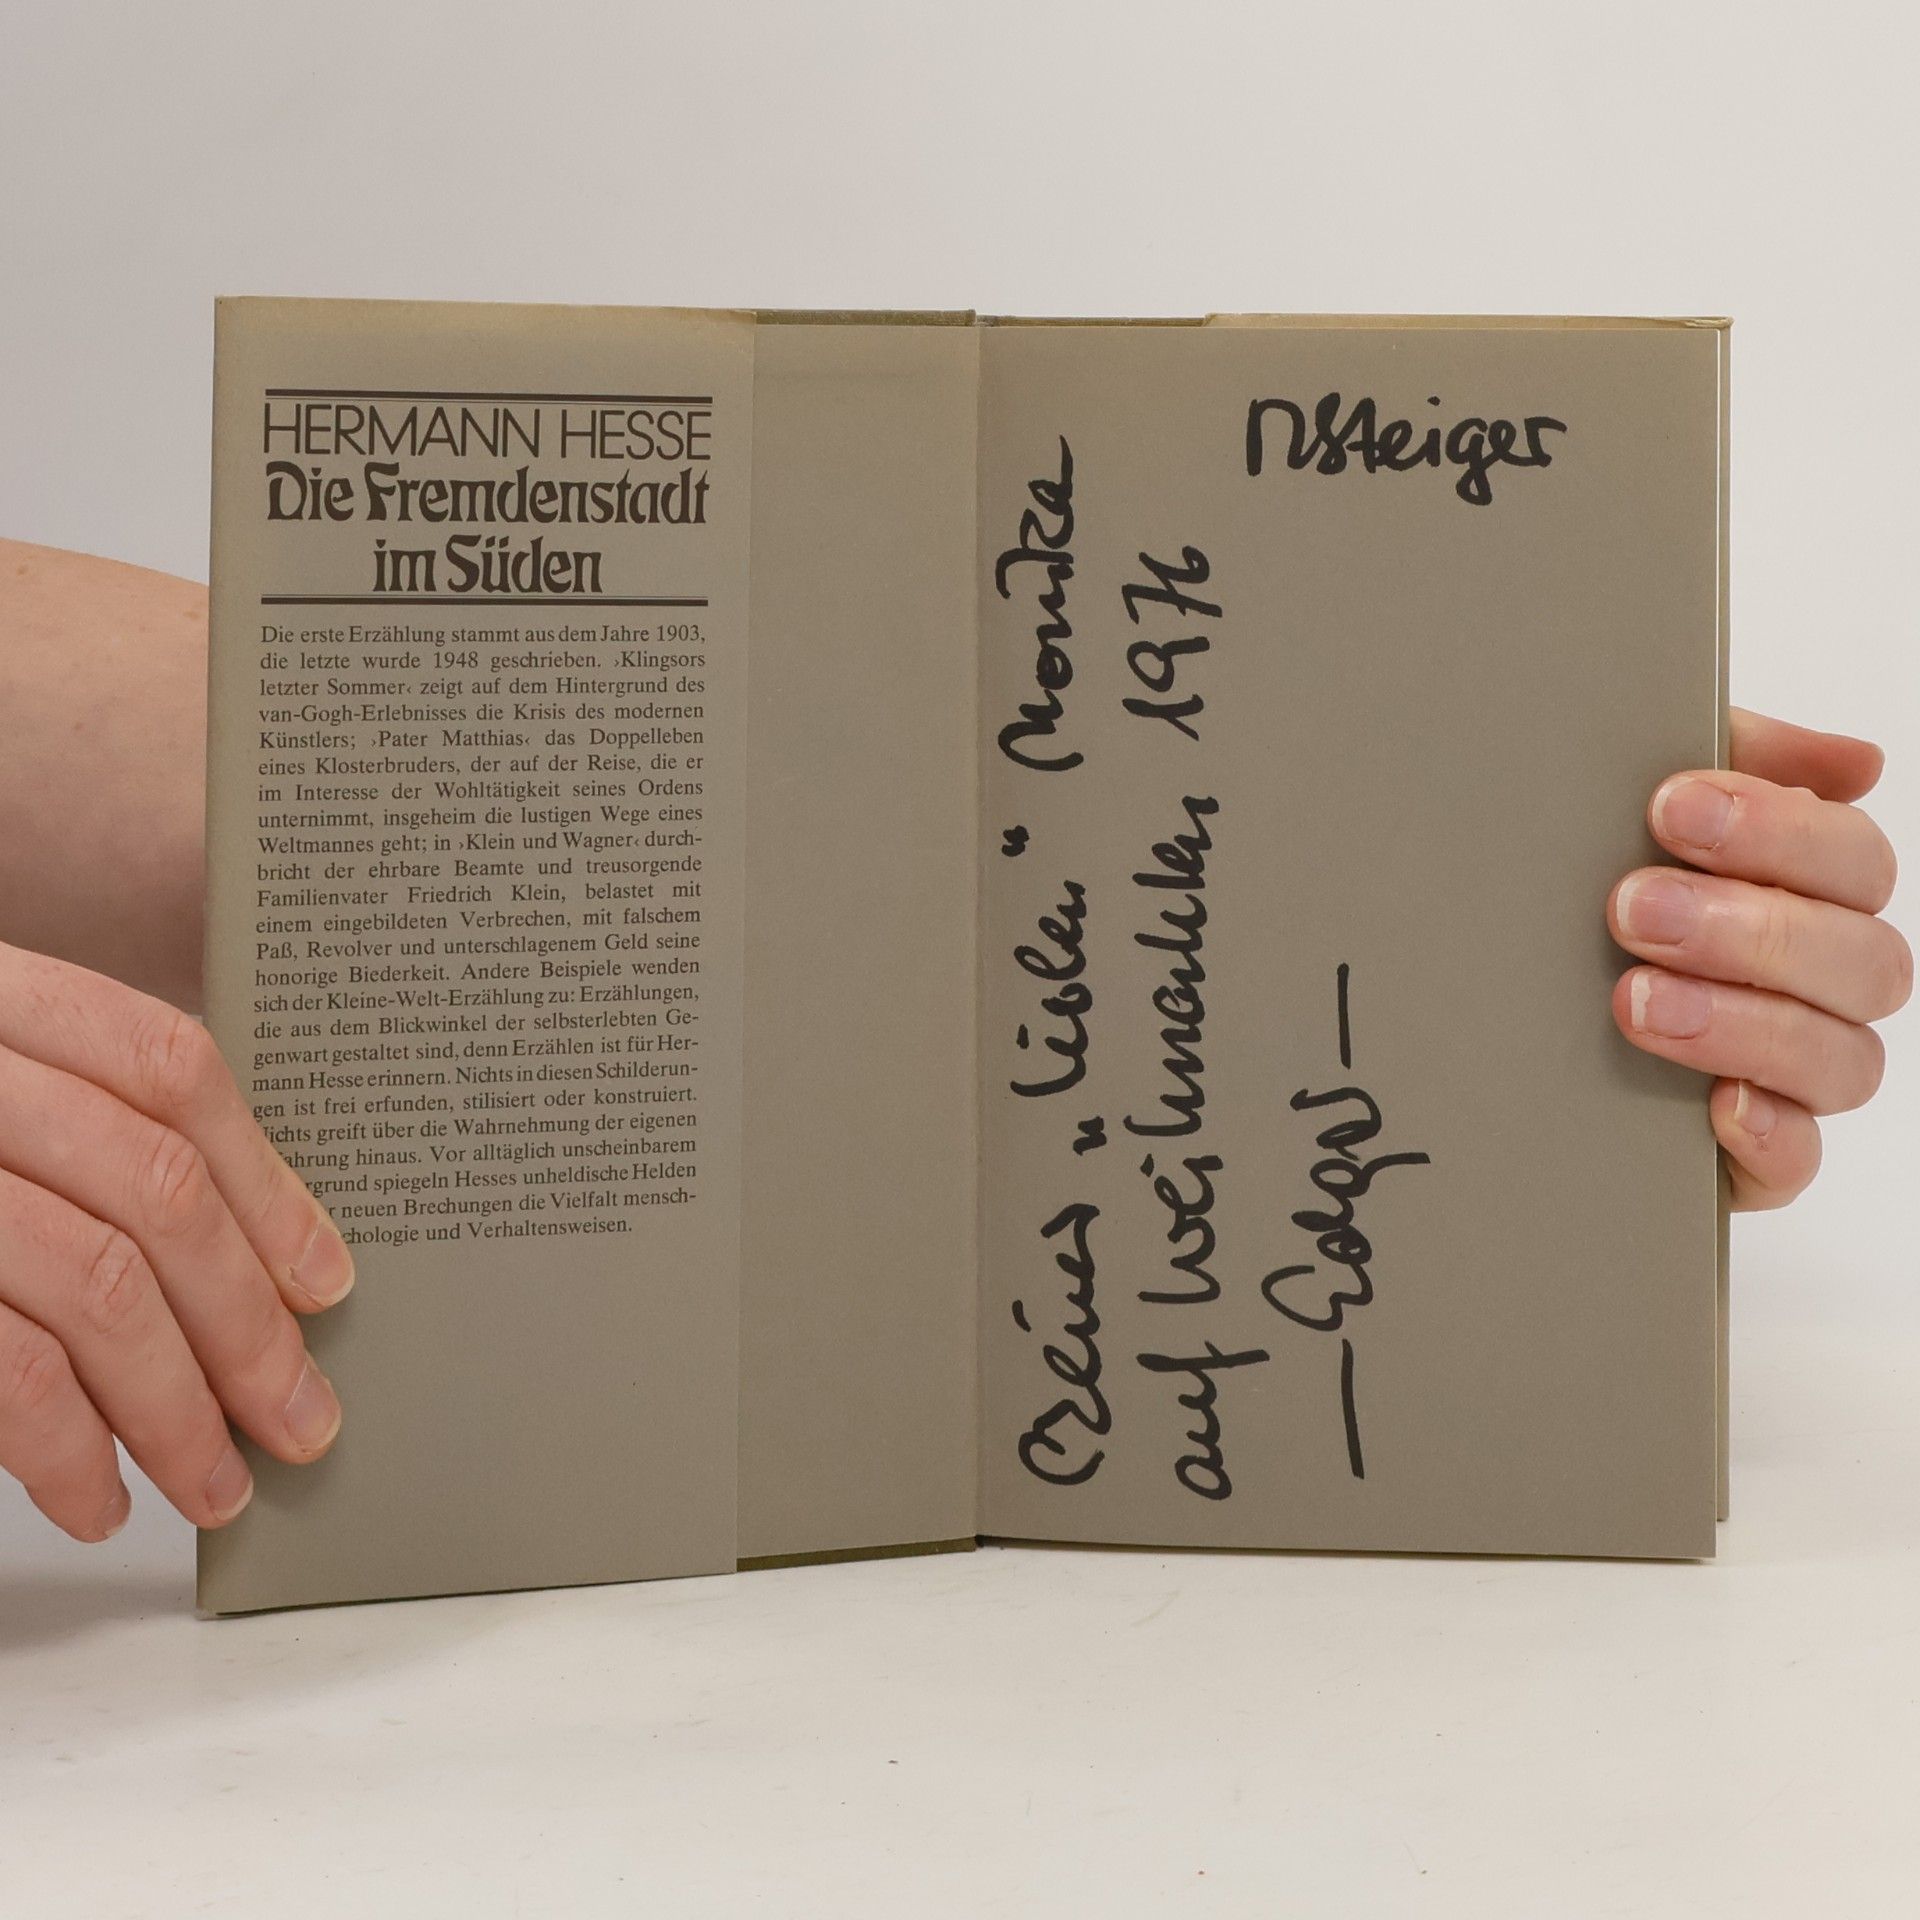 HERMANN HESSE
Die Fremdenstadt
im Süden
Die erste Erzählung stammt aus dem Jahre 1903,
die letzte wurde 1948 geschrieben. ›Klingsors
letzter Sommer‹ zeigt auf dem Hintergrund des
van-Gogh-Erlebnisses die Krisis des modernen
Künstlers; ›Pater Matthias‹ das Doppelleben
eines Klosterbruders, der auf der Reise, die er
im Interesse der Wohltätigkeit seines Ordens
unternimmt, insgeheim die lustigen Wege eines
Weltmannes geht; in ›Klein und Wagner‹ durch-
bricht der ehrbare Beamte und treusorgende
Familienvater Friedrich Klein, belastet mit
einem eingebildeten Verbrechen, mit falschem
Paß, Revolver und unterschlagenem Geld seine
honorige Biederkeit. Andere Beispiele wenden
sich der Kleine-Welt-Erzählung zu: Erzählungen,
die aus dem Blickwinkel der selbsterlebten Ge-
genwart gestaltet sind, denn Erzählen ist für Her-
mann Hesse erinnern. Nichts in diesen Schilderun-
gen ist frei erfunden, stilisiert oder konstruiert.
Nichts greift über die Wahrnehmung der eigenen
ahrung hinaus. Vor alltäglich unscheinbarem
rgrund spiegeln Hesses unheldische Helden
r neuen Brechungen die Vielfalt mensch-
chologie und Verhaltensweisen.
Meiner "lieben" Monika
auf Weihnachten 1976
nsteiger